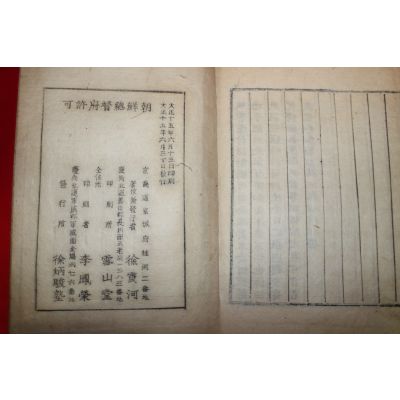 大正十五年六月十五日印刷
大正十五年六月三十日發行
朝鮮總督府許可
京畿道京城府桂洞二番地
著作兼發行者 徐霞河
印刷所 雪山堂
全住所
印刷者 李鳳榮
發行所 徐炳駿塾